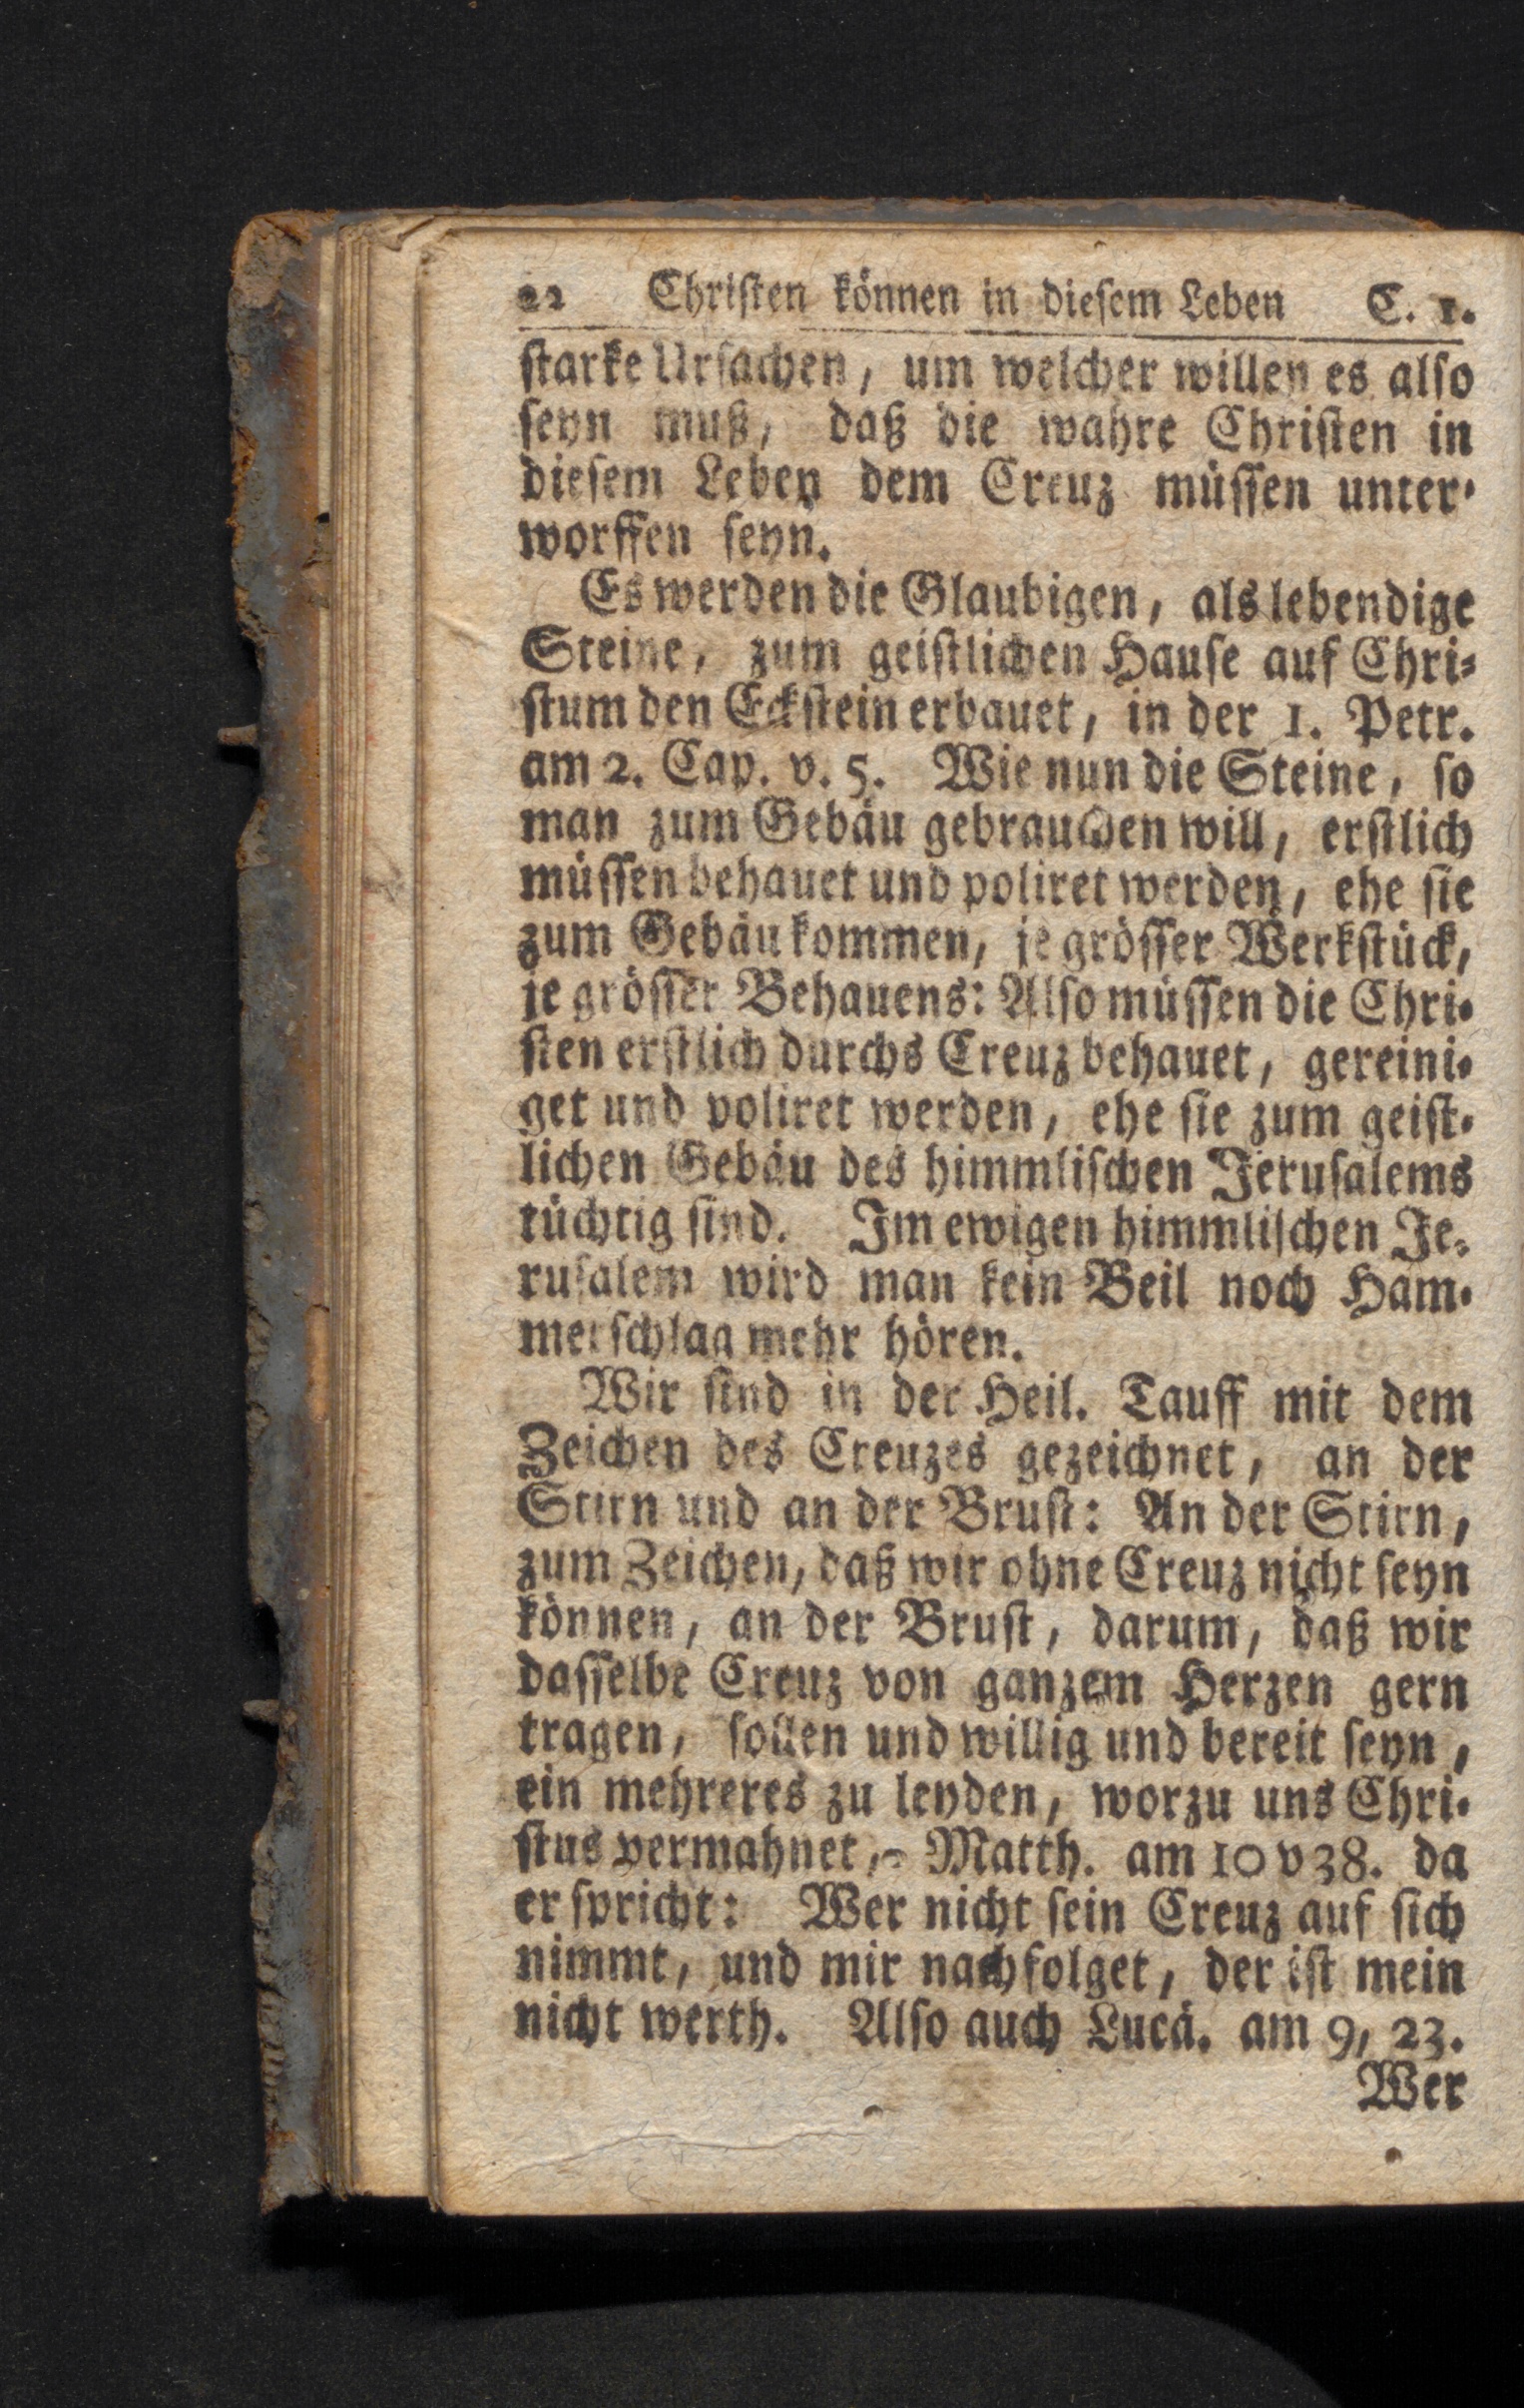 22 Christen können in diesem Leben C. 1.
starke Ursachen, um welcher willen es also
seyn muß, daß die wahre Christen in
diesem Leben dem Creuz müssen unter-
worffen seyn.
Es werden die Glaubigen, als lebendige
Steine, zum geistlichen Hause auf Chri-
stum den Eckstein erbauet, in der 1. Petr.
am 2. Cap. v. 5. Wie nun die Steine, so
man zum Gebäu gebrauchen will, erstlich
müssen behauet und poliret werden, ehe sie
zum Gebäu kommen, je grösser Werkstück,
je grösser Behauens: Also müssen die Chri-
sten erstlich durchs Creuz behauet, gereini-
get und poliret werden, ehe sie zum geist-
lichen Gebäu des himmlischen Jerusalems
tüchtig sind. Im ewigen himmlischen Je-
rusalem wird man kein Beil noch Ham-
merschlag mehr hören.
Wir sind in der Heil. Tauff mit dem
Zeichen des Creuzes gezeichnet, an der
Stirn und an der Brust: An der Stirn,
zum Zeichen, daß wir ohne Creuz nicht seyn
können, an der Brust, darum, daß wir
dasselbe Creuz von ganzem Herzen gern
tragen, sollen und willig und bereit seyn,
ein mehreres zu leyden, worzu uns Chri-
stus vermahnet, Matth. am 10 v 38. da
er spricht: Wer nicht sein Creuz auf sich
nimmt, und mir nachfolget, der ist mein
nicht werth. Also auch Lucä. am 9, 23.
Wer